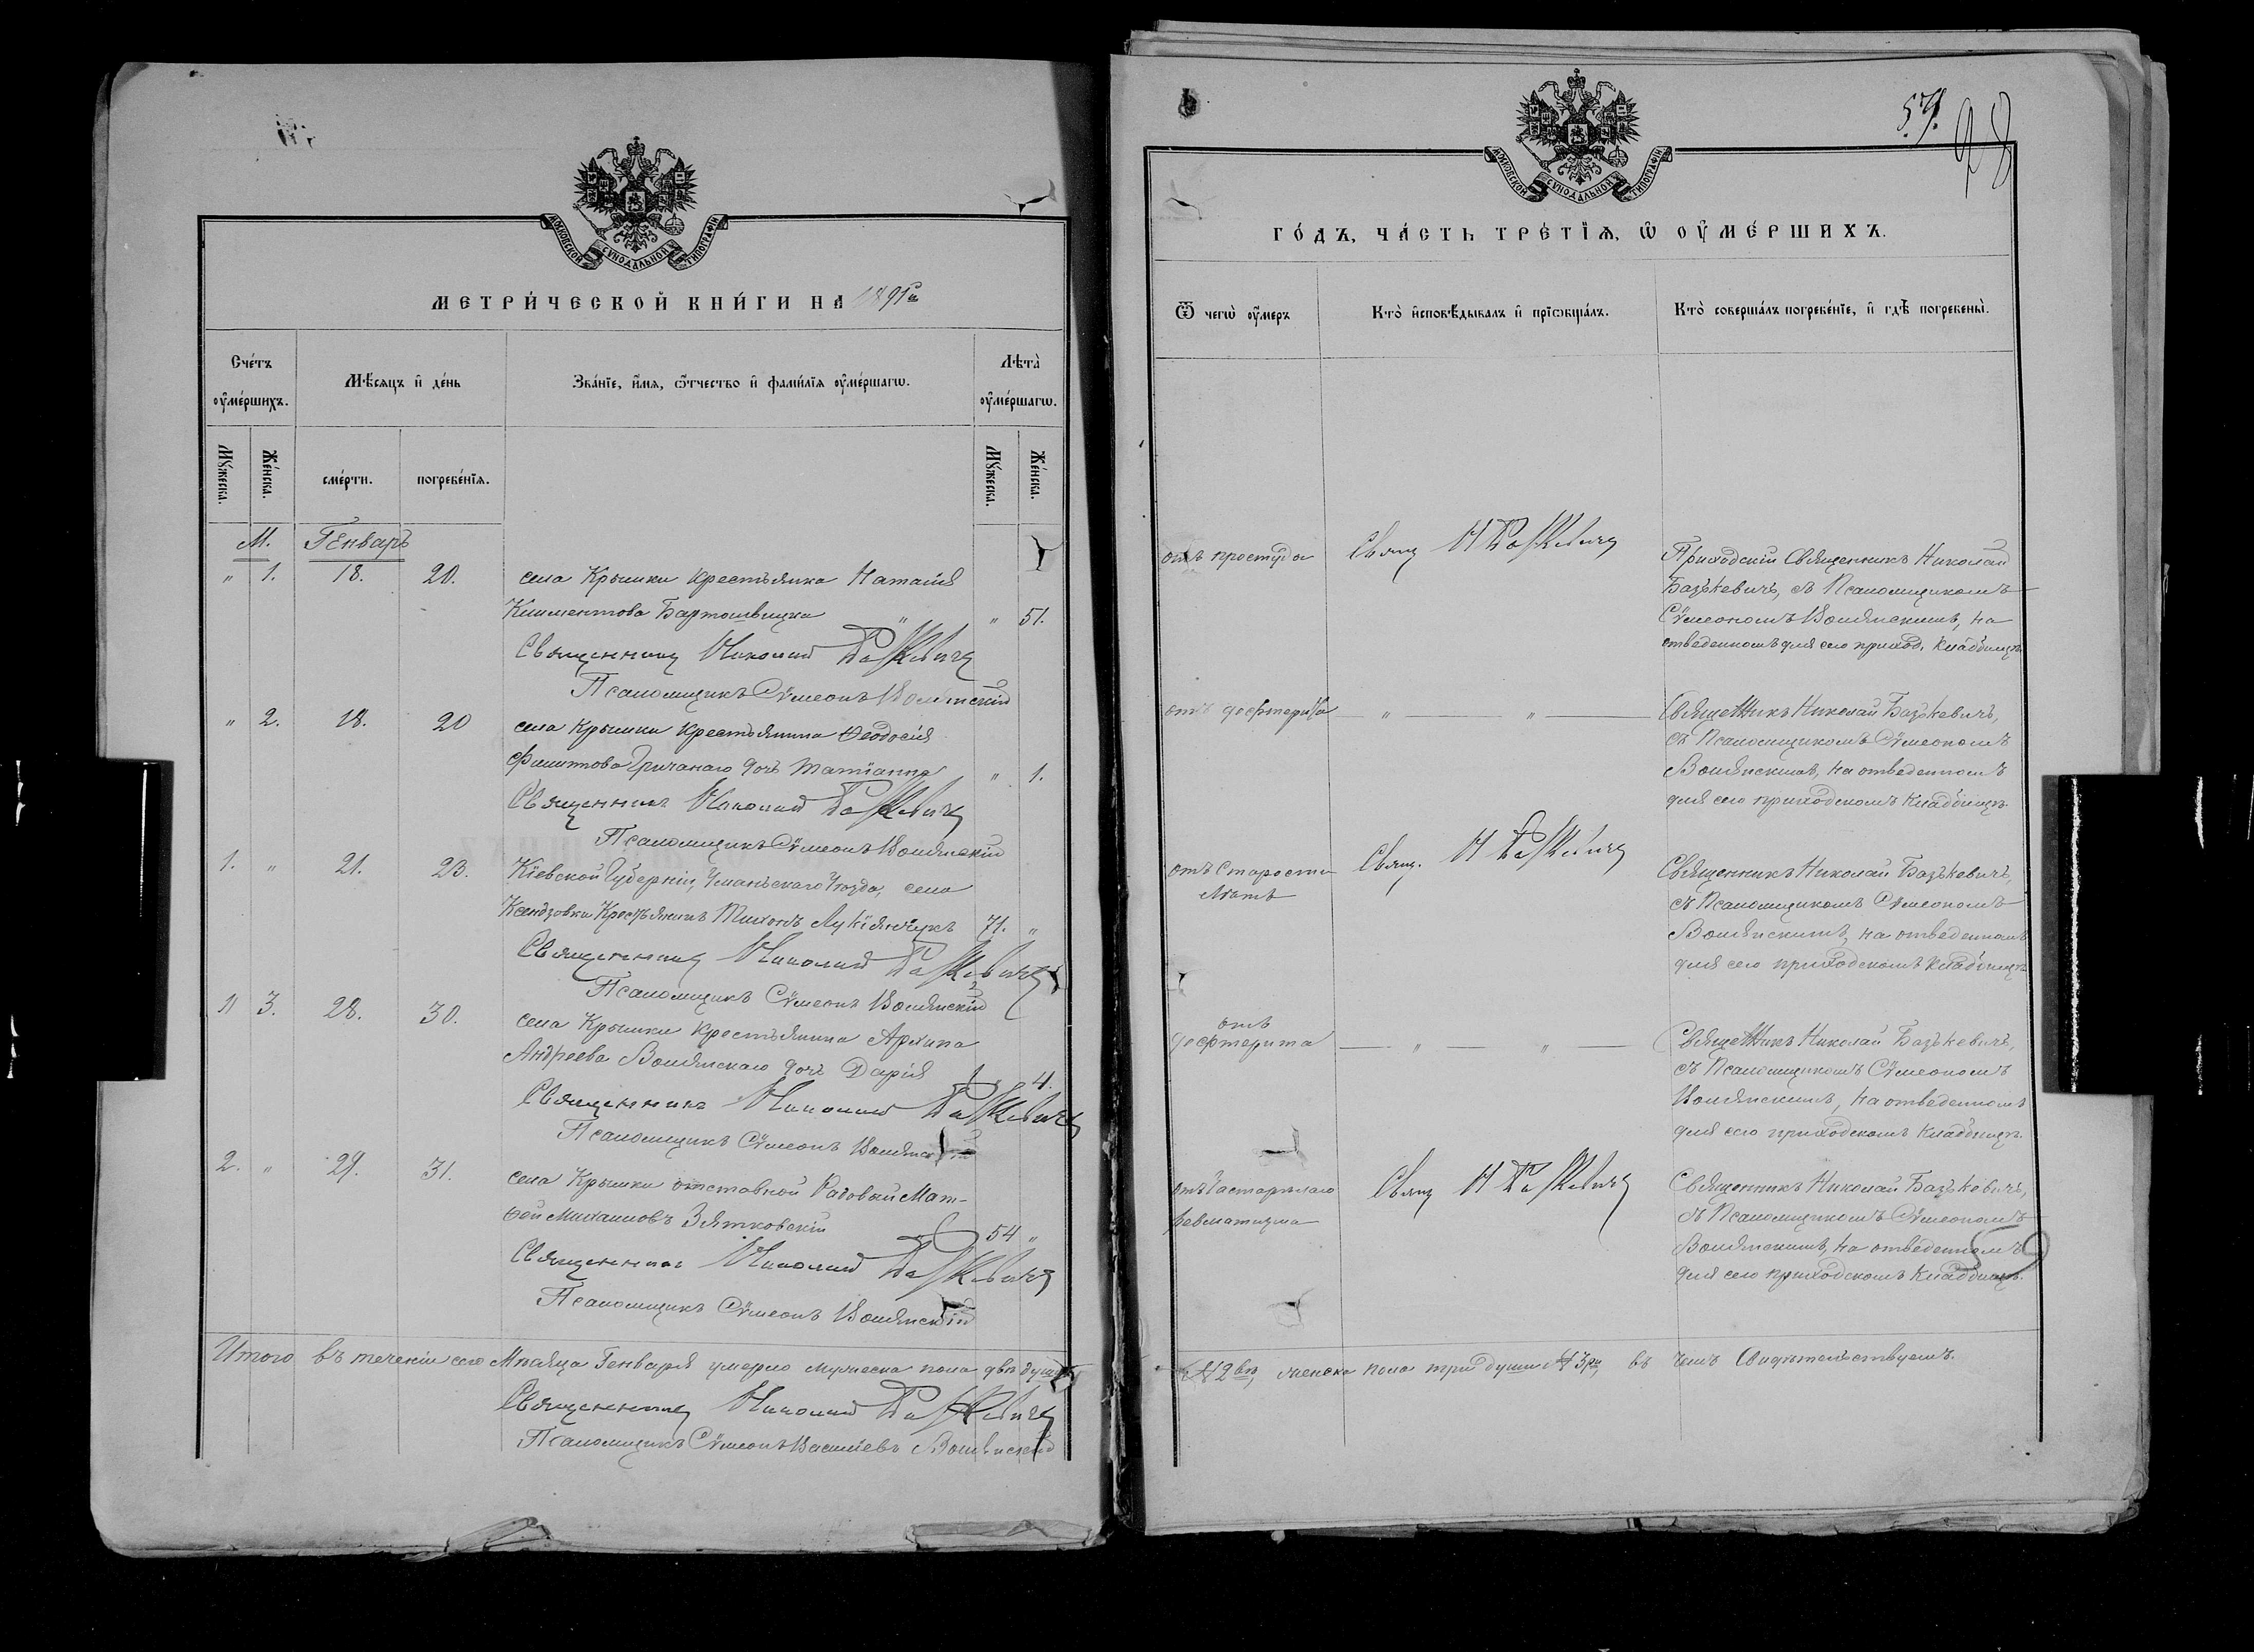 МОСКОВСКОЙ СУНОДАЛЬНОЙ ТИПОГРАФІИ
МЕТРИ́ЧЕСКОЙ КНИ́ГИ НА 1891 го
Сче́тъ оу҆ме́ршихъ.
Мѣ́сяцъ и҆ де́нь
Зва́нїе, и҆́мѧ, ѻ҆́тчество и҆ фами́лїѧ оу҆ме́ршагѡ.
Лѣ́та̀ оу҆ме́ршагѡ.
Мꙋ́жеска.
Же́нска.
сме́рти.
погребе́нїѧ.
Мꙋ́жеска.
Же́нска.
М. Генварь
" 1. 18. 20. села Крымки крестьянка Наталія
Климентова Бартошвицка " " 51.
Священникъ Николай Базькевичъ
Псаломщикъ Сѵмеонъ Волянскій
" 2. 18. 20 села Крымки крестьянина Ѳеодосія
Филиппова Гричанаго дочь Татіанна " 1.
Священникъ Николай Базькевичъ
Псаломщикъ Сѵмеонъ Волянскій
1. " 21. 23. Кіевской Губерніи, Уманьскаго Уѣзда, села
Ксендзовки Крестьянинъ Тихонъ Лукіянчукъ 71. "
Священникъ Николай Базькевичъ
Псаломщикъ Сѵмеонъ Волянскій
" 3. 28. 30. села Крымки крестьянина Архипа
Андреева Волянскаго дочь Дарія 4.
Священникъ Николай Базькевичъ
Псаломщикъ Сѵмеонъ Волянскій
2. " 29. 31. села Крымки отставной Рядовый Мат-
ѳей Михаиловъ Зятковскій 54 "
Священникъ Николай Базькевичъ
Псаломщикъ Сѵмеонъ Волянскій
Итого въ теченіи сего Мѣсяца Генваря умерло мужеска пола двѣ души
Священникъ Николай Базькевичъ
Псаломщикъ Сѵмеонъ Василіевъ Волянскій
57.
98
МОСКОВСКОЙ СУНОДАЛЬНОЙ ТИПОГРАФІИ
ГО́ДЪ, ЧА́СТЬ ТРЕ́ТЇѦ, Ѡ҆ ОУ҆МЕ́РШИХЪ.
Ѿ чегѡ̀ оу҆́меръ
Кто̀ и҆сповѣ́дывалъ и҆ прїѡбща́лъ.
Кто̀ соверша́лъ погребе́нїе, и҆ гдѣ̀ погребены̀.
отъ простуды Свящ Н Базькевичъ Приходскій Священникъ Николай
Базькевичъ, съ Псаломщикомъ
Сѵмеономъ Волянскимъ, на
отведенномъ для сего приход. Кладбищѣ
отъ дефтерита " " Священникъ Николай Базькевичъ,
съ Псаломщикомъ Сѵмеономъ
Волянскимъ, на отведенномъ
для сего приходскомъ Кладбищѣ
отъ Старости Свящ. Н Базькевичъ Священникъ Николай Базькевичъ,
Лѣтъ съ Псаломщикомъ Сѵмеономъ
Волянскимъ, на отведенномъ
для сего приходскомъ Кладбищѣ
отъ
дефтерита " " Священникъ Николай Базькевичъ,
съ Псаломщикомъ Сѵмеономъ
Волянскимъ, на отведенномъ
для сего приходскомъ Кладбищѣ.
отъ Застарѣлаго Свящ Н Базькевичъ Священникъ Николай Базькевичъ,
ревматизма съ Псаломщикомъ Сѵмеономъ
Волянскимъ, на отведенномъ
для сего приходскомъ Кладбищѣ.
59
№ 2 вѣ, женска пола три души № 3 ри, въ чемъ Свидѣтельствуемъ.